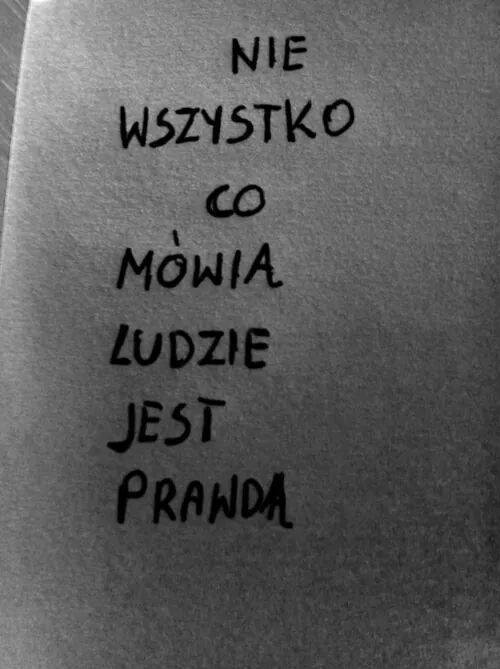 NIE
WSZYSTKO
CO
MÓWIĄ
LUDZIE
JEST
PRAWDĄ